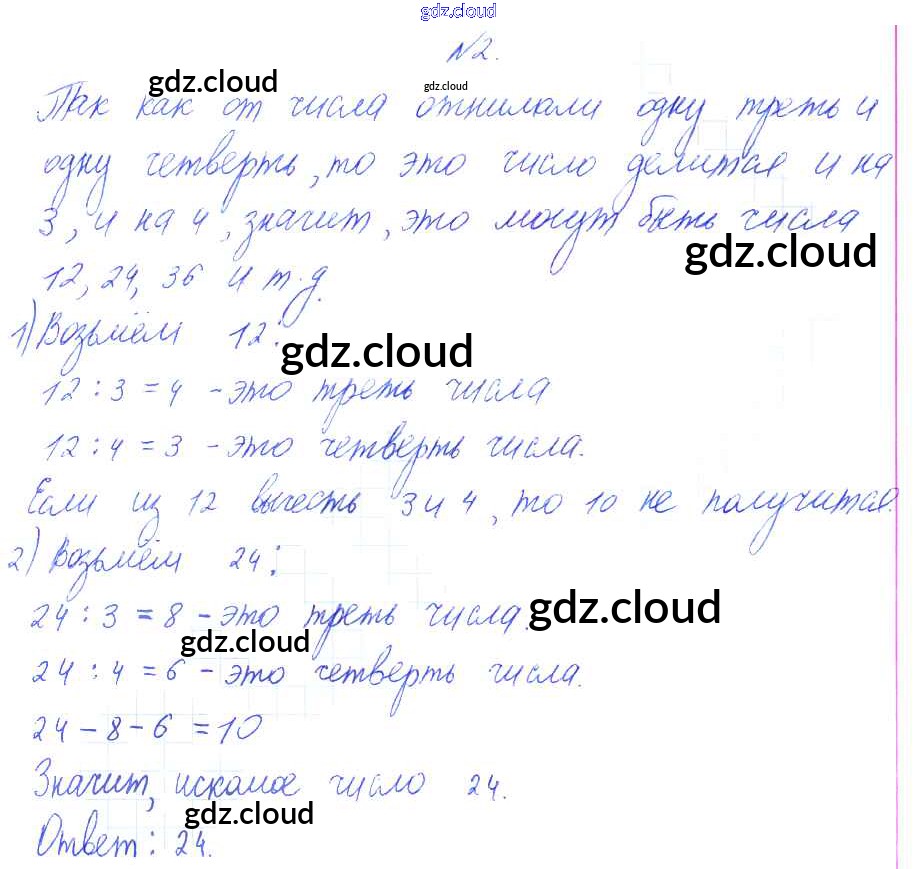 gdz.cloud
№2.
gdz.cloud
gdz.cloud
Так как от числа отнимали одну треть и
одну четверть, то это число делится и на
3, и на 4, значит, это могут быть числа
gdz.cloud
12, 24, 36 и т.д.
1) Возьмём 12:
gdz.cloud
12 : 3 = 4 - это треть числа
12 : 4 = 3 - это четверть числа.
Если из 12 вычесть 3 и 4, то 10 не получится.
2) Возьмём 24:
24 : 3 = 8 - это треть числа.
gdz.cloud
gdz.cloud
24 : 4 = 6 - это четверть числа.
24 - 8 - 6 = 10
Значит, искомое число 24.
gdz.cloud
Ответ: 24.